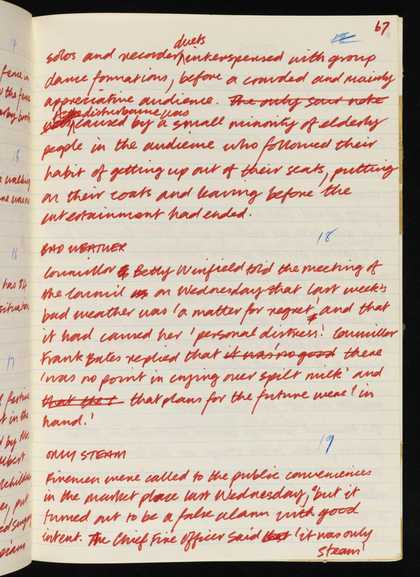 67
duets
solos and recorder interspersed with group
dance formations, before a crowded and mainly
appreciative audience. The only sour note
A disturbance was
caused by a small minority of elderly
people in the audience who followed their
habit of getting up out of their seats, putting
on their coats and leaving before the
entertainment had ended.
18
BAD WEATHER
Councillor Betty Winfield told the meeting of
the Council on Wednesday that last week's
bad weather was 'a matter for regret' and that
it had caused her 'personal distress'. Councillor
Frank Bates replied that it was 'no good there
'was no point in crying over spilt milk' and
that the c that plans for the future were 'in
hand.'
19
ONLY STEAM
Firemen were called to the public conveniences
in the market place last Wednesday, but it
turned out to be a false alarm with good
intent. The Chief Fire Officer said that 'it was only
steam'